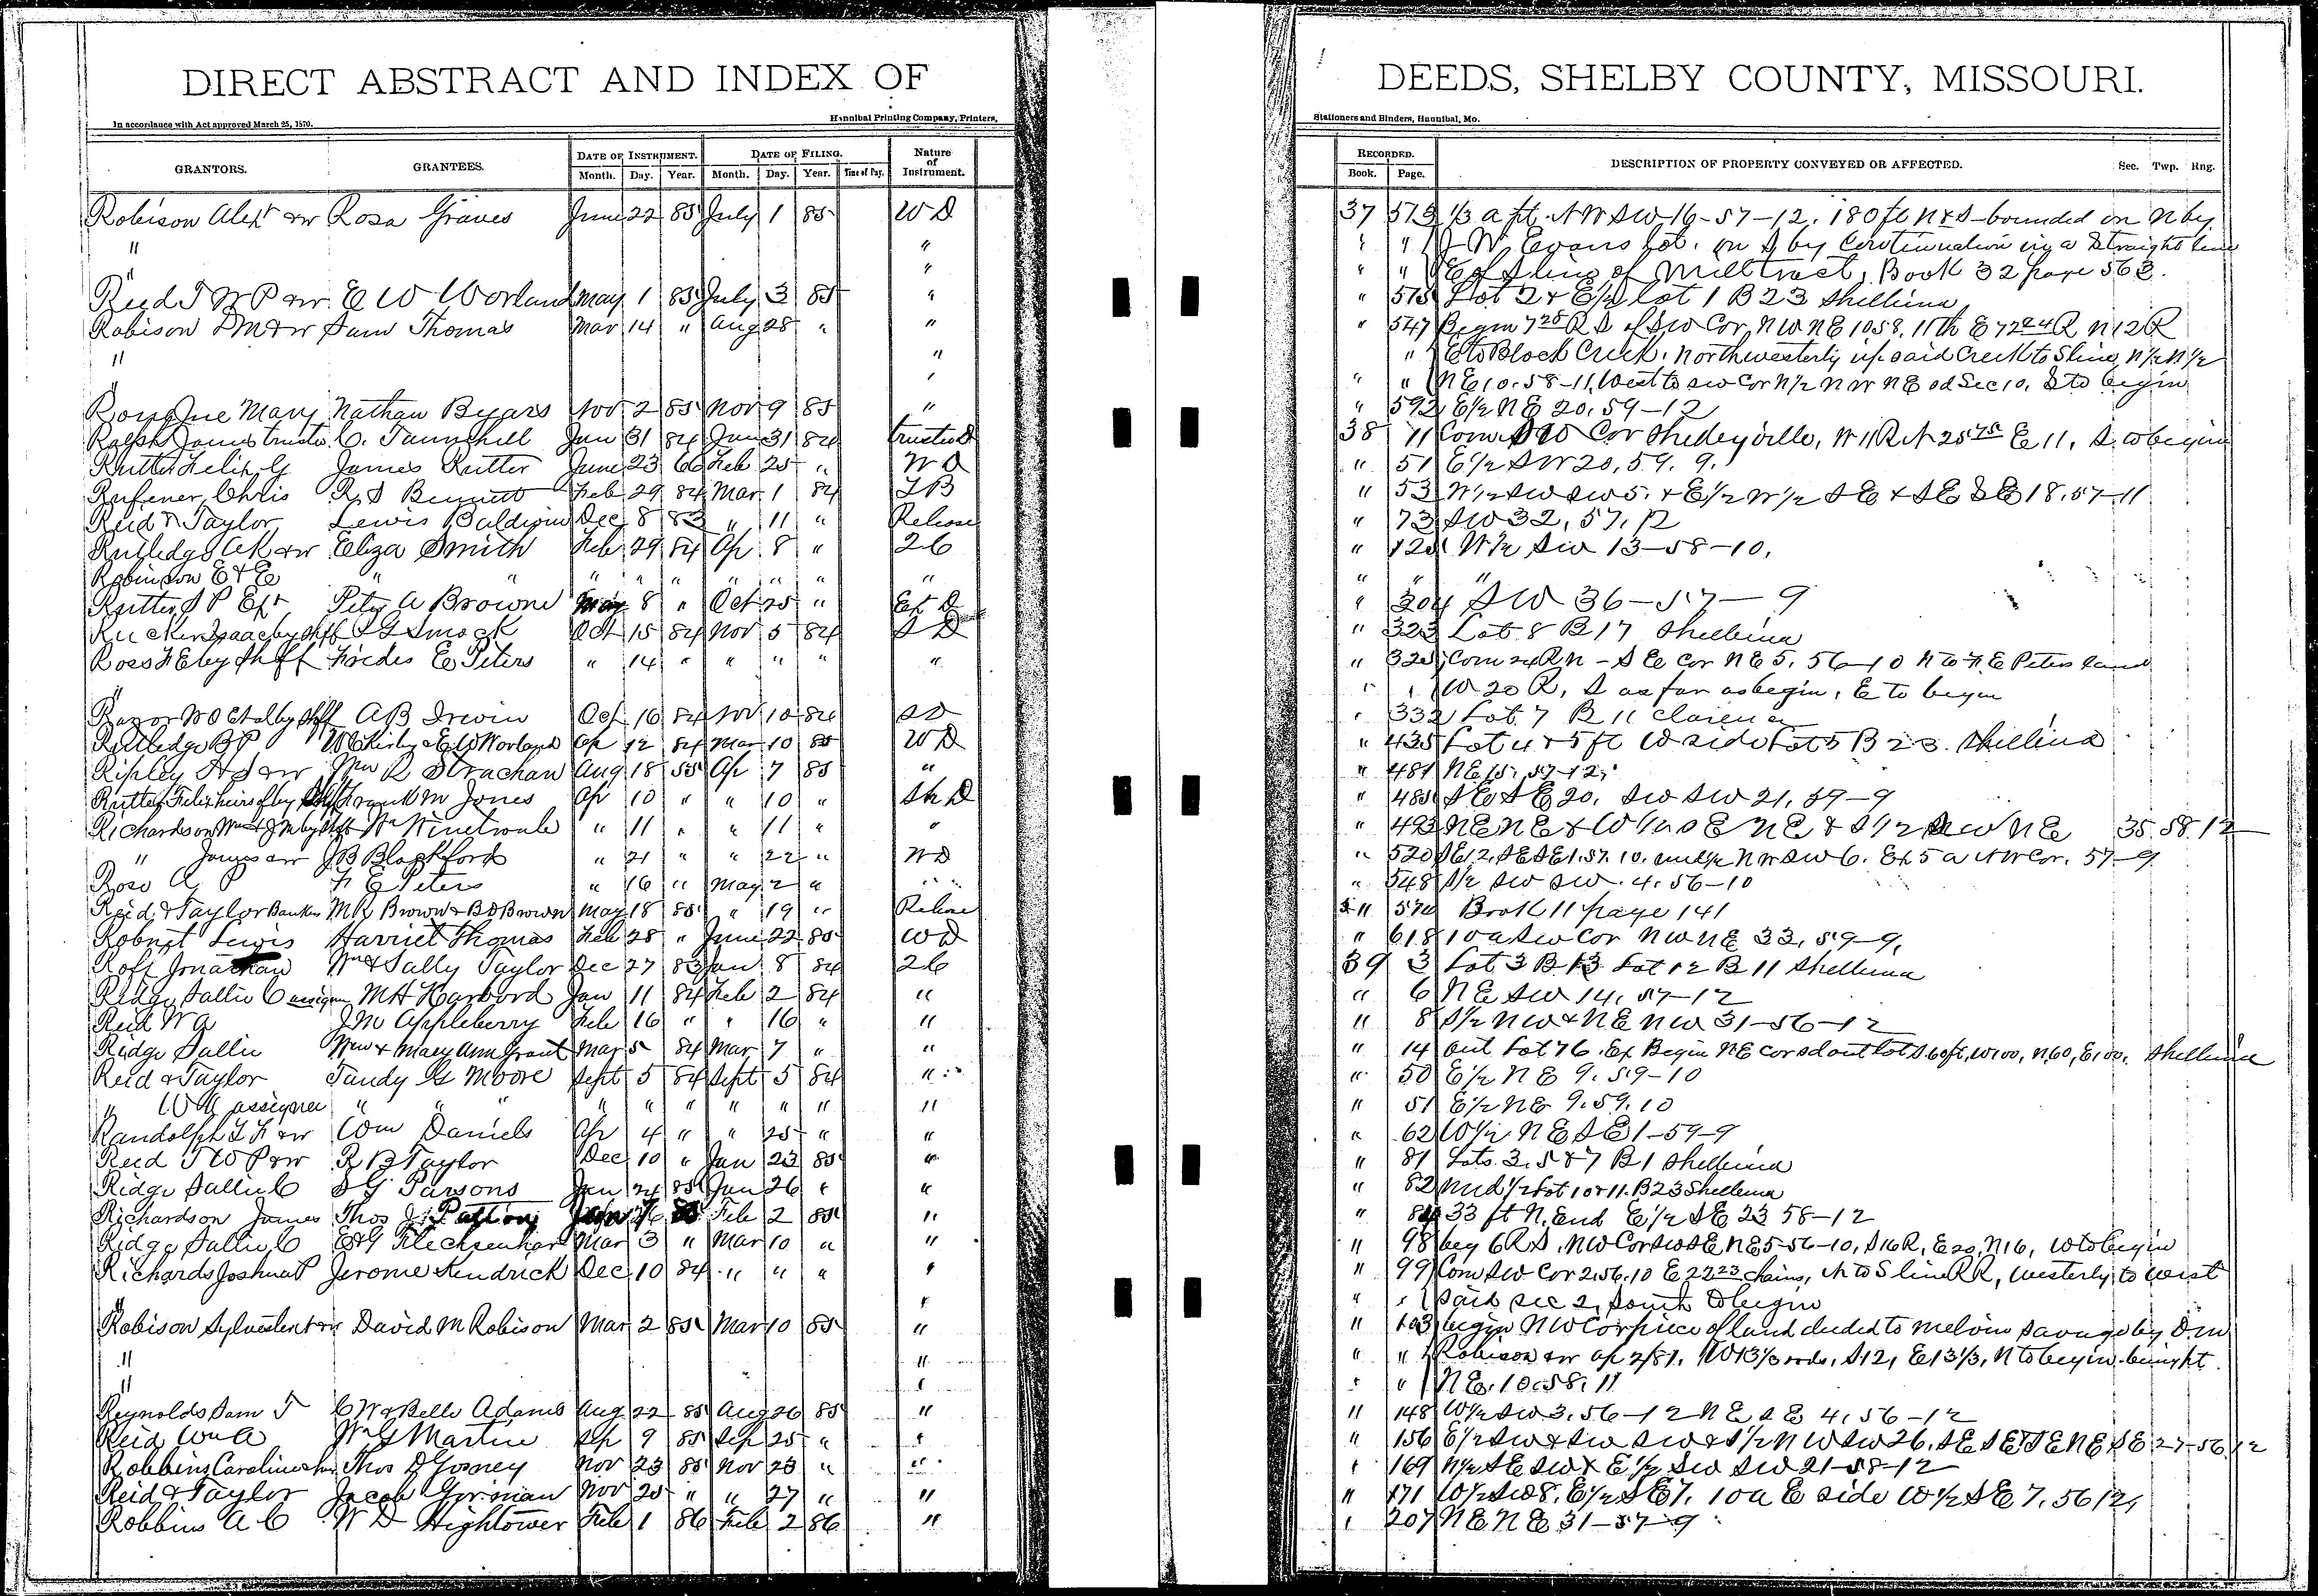 DIRECT ABSTRACT AND INDEX OF DEEDS, SHELBY COUNTY, MISSOURI.
In accordance with Act approved March 25, 1870. Hannibal Printing Company, Printers, Stationers and Binders, Hannibal, Mo.
GRANTORS. GRANTEES. DATE OF INSTRUMENT. DATE OF FILING. Nature of Instrument. RECORDED. DESCRIPTION OF PROPERTY CONVEYED OR AFFECTED. Sec. Twp. Rng.
Month. Day. Year. Month. Day. Year. Time of Day. Book. Page.
Robison Alexr & w Rosa Graves June 22 85 July 1 85 W D 37 513 1/3 a pt. NW SW 16-57-12. 180 ft N & S bounded on N by
" " " " J W Evans lot. on S by Continuation in a Straight line
" " " " E of S line of Mill tract, Book 32 page 563.
Reed T W P & w. E W Worland May 1 85 July 3 85 " " 515 Lot 2 & E 1/2 lot 1 B 23 Shelbina
Robison D M & w Sam Thomas Mar 14 " Aug 28 " " " 547 Begin 7 28 R S of SW Cor, NW NE 10 58. 11 th E 72 24 R N 12 R
" " " E to Block Creek. Northwesterly up said Creek to S line N 1/2 N 1/2
" " " " NE 10-58-11, West to SW Cor N 1/2 NW NE sd Sec 10, S to begin
Mary Nathan Byars Nov 2 85 Nov 9 85 " " 592 E 1/2 NE 20, 59-12
Ralph James trustee C. Tannehill Jan 31 84 Jan 31 84 trustee D 38 11 Com. SW Cor Shelbyville, W 11 R N 25 75 E 11, S to begin
Rutter Felix G James Rutter June 23 66 Feb 25 " W D " 51 E 1/2 SW 20, 59. 9.
Rufener, Chris R. S Bennett Feb 29 84 Mar. 1 84 T B " 53 W 1/2 SW SW 5. & E 1/2 W 1/2 SE & SE SE 18. 57-11
Reid & Taylor Lewis Baldwin Dec 8 83 " 11 " Release " 73 SW 32, 57, 12
Rutledge A K & w Eliza Smith Feb 29 84 Ap 8 " 26 " 125 W 1/2 SW 13-58-10.
Robinson E & E " " " " " " " " " " " "
Rutter, S P Exr Peter A Browne May 8 " Oct 25 " Ex D " 304 SW 36-57-9
Rucker Isaac by shff S G Smock Oct 15 84 Nov 5 84 S D " 323 Lot 8 B 17 Shelbina
Ross F E by Shff E Peters " 14 " " " " " " 325 Com 24 R N - SE Cor NE 5. 56-10 N to F E Peters land
" " " W 20 R, S as far as begin, E to begin
Razor W O Et al by Shff A B Irwin Oct 16 84 Nov 10 84 S D " 332 Lot 7 B 11 Clarence
Rutledge B P W Kirby & E W Worland Ap 12 84 Mar 10 85 W D " 435 Lot 4 & 5 ft W side Lot 5 B 23 Shelbina
Ripley & w Wm R Strachan Aug 18 55 Ap 7 85 " " 481 NE 15, 57-12.
Rutter Felix heirs of by Shff Frank M Jones Ap 10 " " 10 " Sh D " 485 SE SE 20, SW SW 21, 59-9
Richardson Wm & J M by Shff " 11 " " 11 " " " 493 NE NE & W 1/2 SE NE & S 1/2 SW NE 35 58 12
" James & w J B Blackford " 21 " " 22 " W D " 520 SE 12, SE SE 1. 57. 10. N W SW 6. Ex 5 a NW Cor. 57-9
Rose A F E Peters " 16 " May 2 " " " 548 S 1/2 SW SW. 4. 56-10
Reid & Taylor Bankers M R Brown & B D Brown May 18 85 " 19 " Release " 570 Book 11 page 141
Lewis Harriet Thomas Feb 28 " June 22 85 W D " 618 10 a SW Cor NW NE 33, 59-9,
Roff Jonathan Wm & Sally Taylor Dec 27 83 Jan 8 84 26 39 3 Lot 3 B 13 Lot 12 B 11 Shelbina
Ridge Sallie C assignee M H Harbord Jan 11 84 Feb 2 84 " " 6 NE SW 14, 57-12
Reid W A J M Appleberry Feb 16 " " 16 " " " 8 S 1/2 NW & NE NW 31-56-12
Ridge Sallie Wm & Mary Ann Grant Mar 5 84 Mar 7 " " " 14 Out Lot 76. Ex Begin NE Cor sd out lot S 60 ft, W 100, N 60, E 100, Shelbina
Reid & Taylor Tandy G Moore Sept 5 84 Sept 5 84 " " 50 E 1/2 NE 9. 59-10
" W A assignee " " " " " " " " " " " 51 E 1/2 NE 9. 59. 10
Randolph L F & w Wm Daniels Ap 4 " " 25 " " " 62 W 1/2 NE SE 1-59-9
Reed T W P & w R B Taylor Dec 10 " Jan 23 85 " " 81 Lots. 3, 5 & 7 B 1 Shelbina
Ridge Sallie C S G Parsons Jan 24 85 Jan 26 " " " 82 mid 1/2 Lot 10 & 11. B 23 Shelbina
Richardson James Thos J. Patton Feb 2 85 " " 84 33 ft N. End E 1/2 SE 23 58-12
Ridge Sallie C Mar 3 " Mar 10 " " " 98 beg 6 R S. NW Cor SW SE NE 5-56-10, S 16 R, E 20, N 16, W to begin
Richards Joshua P Jerome Kendrick Dec 10 84 " " " " " 99 Com SW Cor 2. 56. 10 E 22 23 chains, N to S line RR, Westerly to West
" " " " said sec 2, South to begin
Robison Sylvester & w David M Robison Mar 2 85 Mar 10 85 " " 103 begin NW Cor piece of land deeded to Melvin Savage by D M
" " " " Robison & w Ap 2/81. W 13 1/3 rods, S 12, E 13 1/3, N to begin
" " " " NE. 10. 58. 11
Reynolds Sam T C W & Belle Adams Aug 22 85 Aug 26 85 " " 148 W 1/2 SW 3. 56-12 NE SE 4, 56-12
Reid Wm A Wm G Martin Sep 9 85 Sep 25 " " " 156 E 1/2 SW & SW SW & S 1/2 NW SW 26. SE SE & SE NE SE 27-56 12
Robbins Caroline Thos D Gosney Nov 23 85 Nov 23 " " " 169 N 1/2 SE SW & E 1/2 SW SW 21-58-12
Reid & Taylor Jacob Gorman Nov 25 " " 27 " " " 171 W 1/2 SW 8. E 1/2 SE 7. 10 a E side W 1/2 SE 7. 56 12,
Robbins A C W D Hightower Feb 1 86 Feb 2 86 " " 207 NE NE 31-57-9